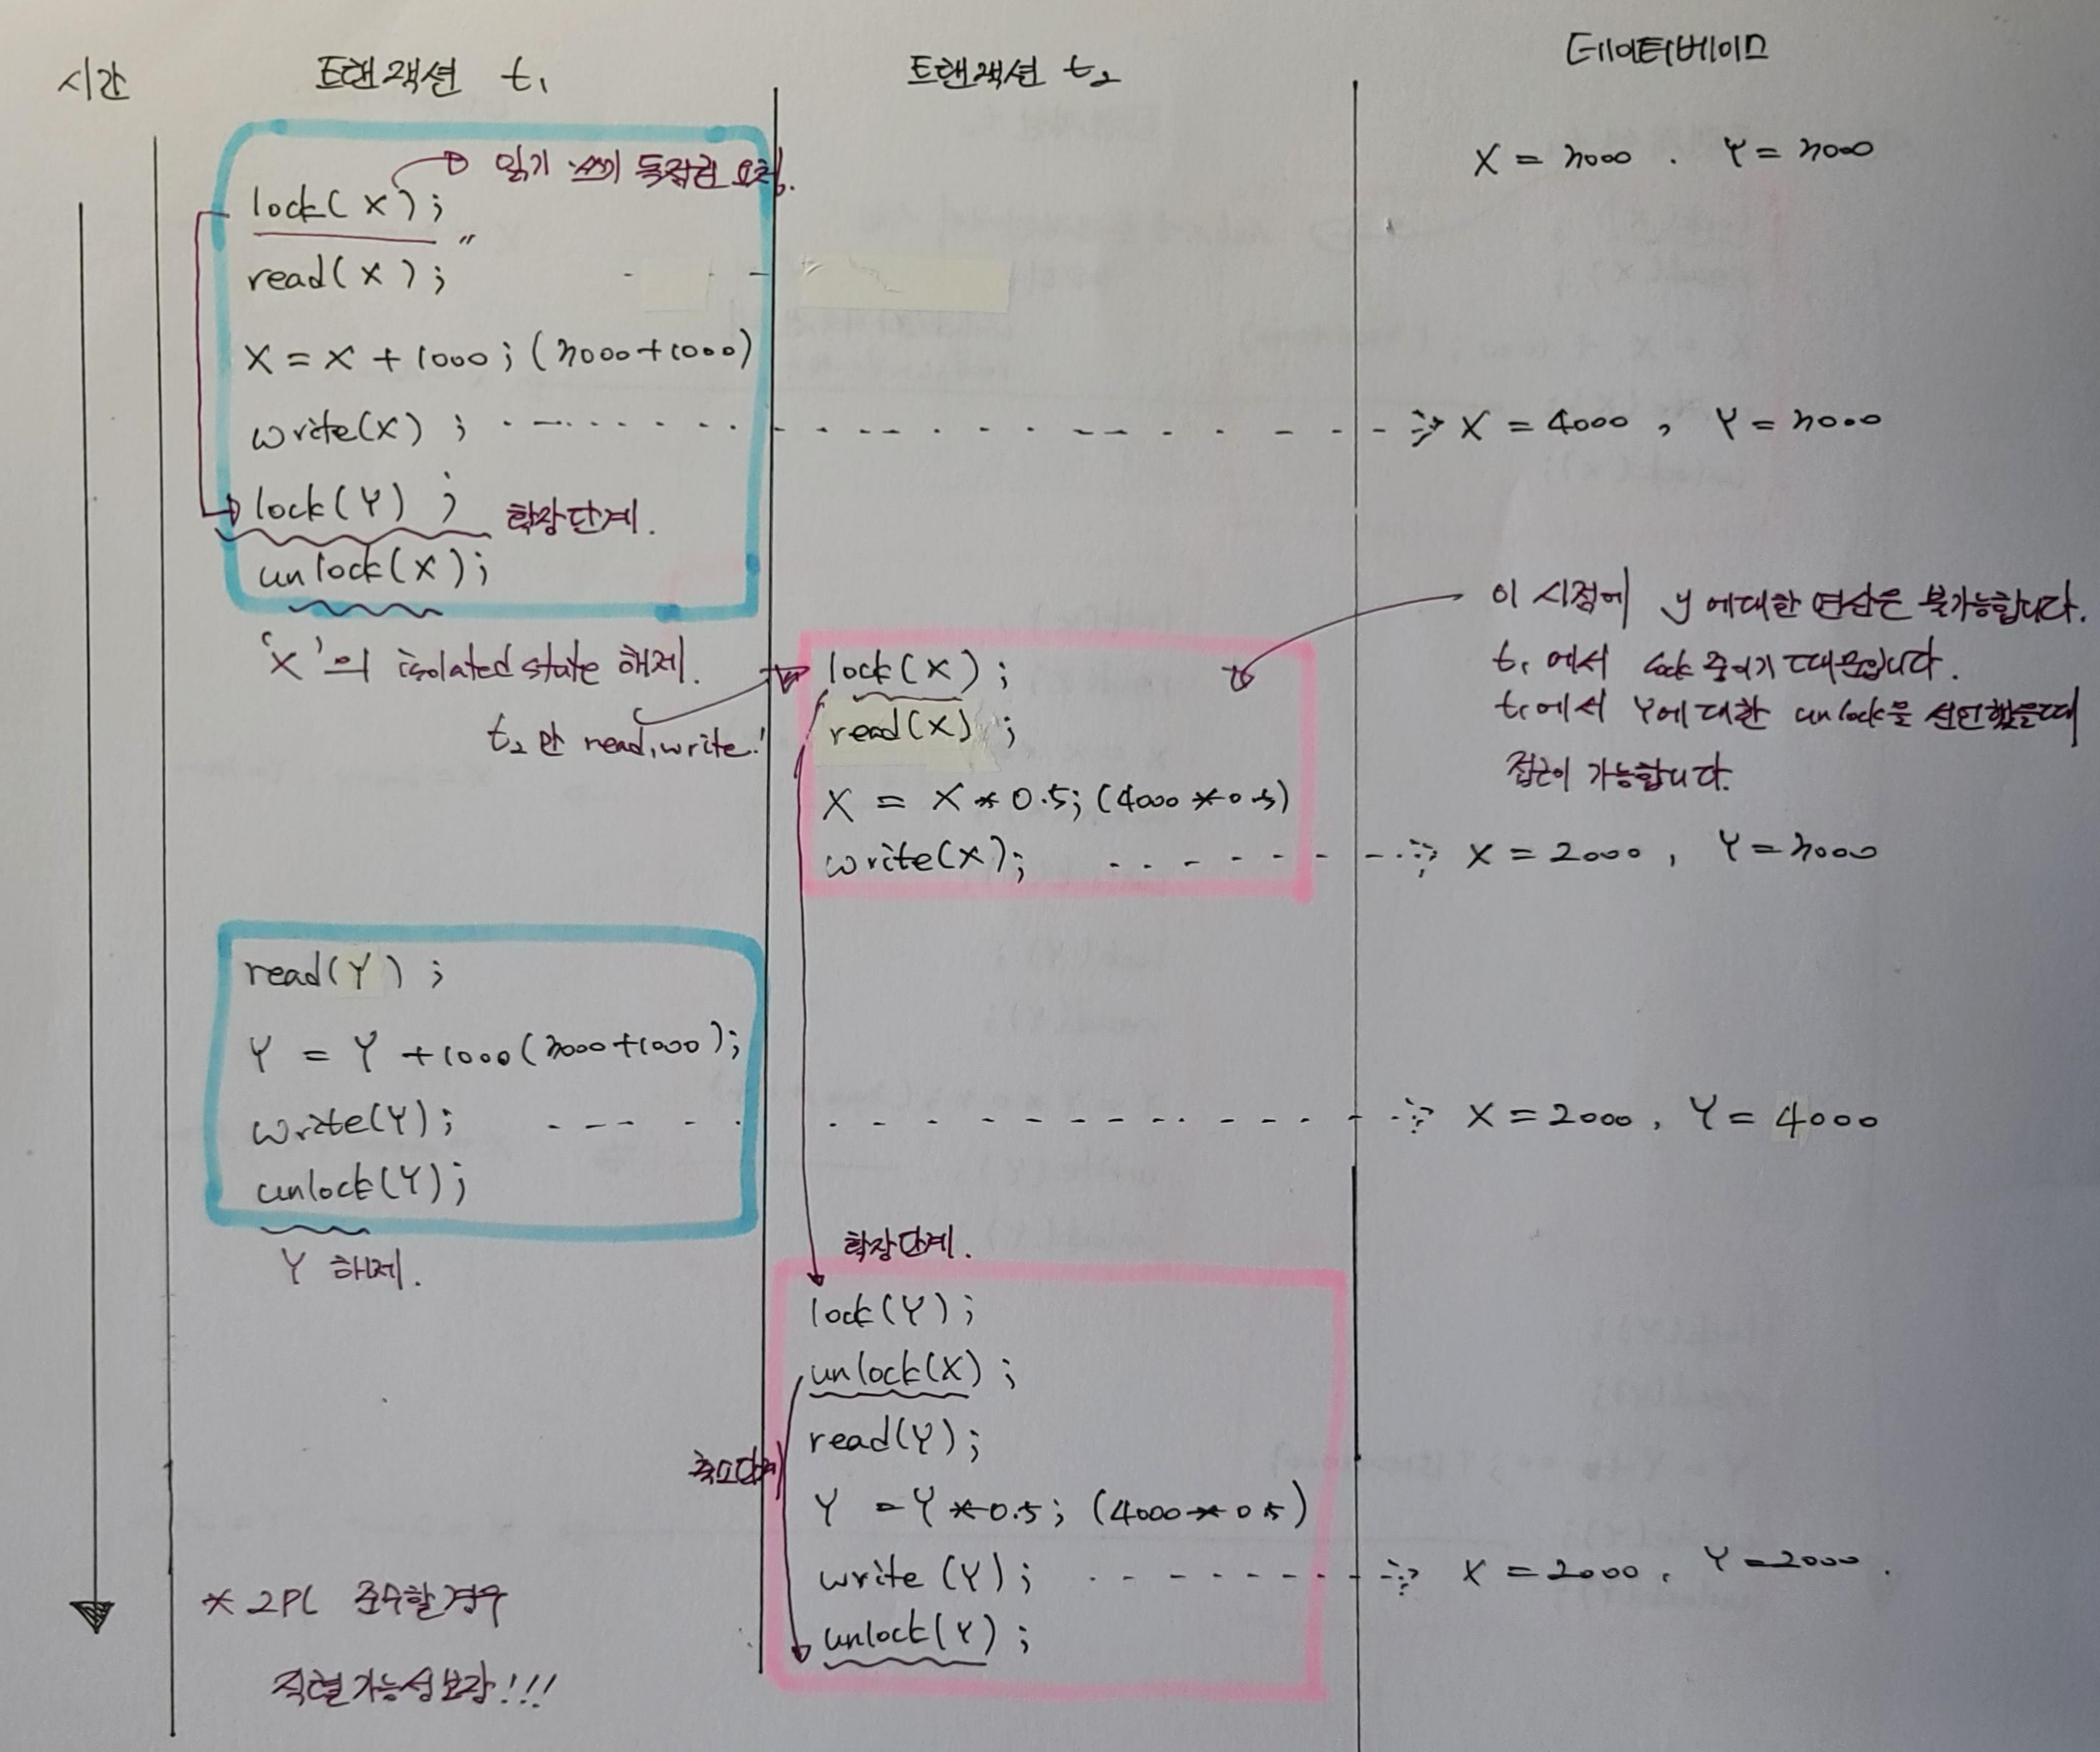 시간
트랜잭션 t₁
트랜잭션 t₂
데이터베이스
X = 3000 . Y = 3000
읽기 쓰기 독점권 요청.
lock(X);
read(X);
X = X + 1000; (3000+1000)
write(X);
X = 4000, Y = 3000
lock(Y); 확장단계.
unlock(X);
'X'의 isolated state 해제.
t₂ 만 read, write!
lock(X);
read(X);
X = X * 0.5; (4000 * 0.5)
write(X);
이 시점에 y 에대한 연산은 불가능합니다.
t₁ 에서 lock 중이기 때문입니다.
t₁에서 Y에 대한 unlock을 선언했을때
접근이 가능합니다.
X = 2000, Y = 3000
read(Y);
Y = Y + 1000 (3000+1000);
write(Y);
X = 2000, Y = 4000
unlock(Y);
Y 해제.
확장단계.
lock(Y);
unlock(X);
read(Y);
축소단계
Y = Y * 0.5; (4000 * 0.5)
write(Y);
X = 2000, Y = 2000.
unlock(Y);
* 2PL 준수할경우
직렬가능성보장!!!